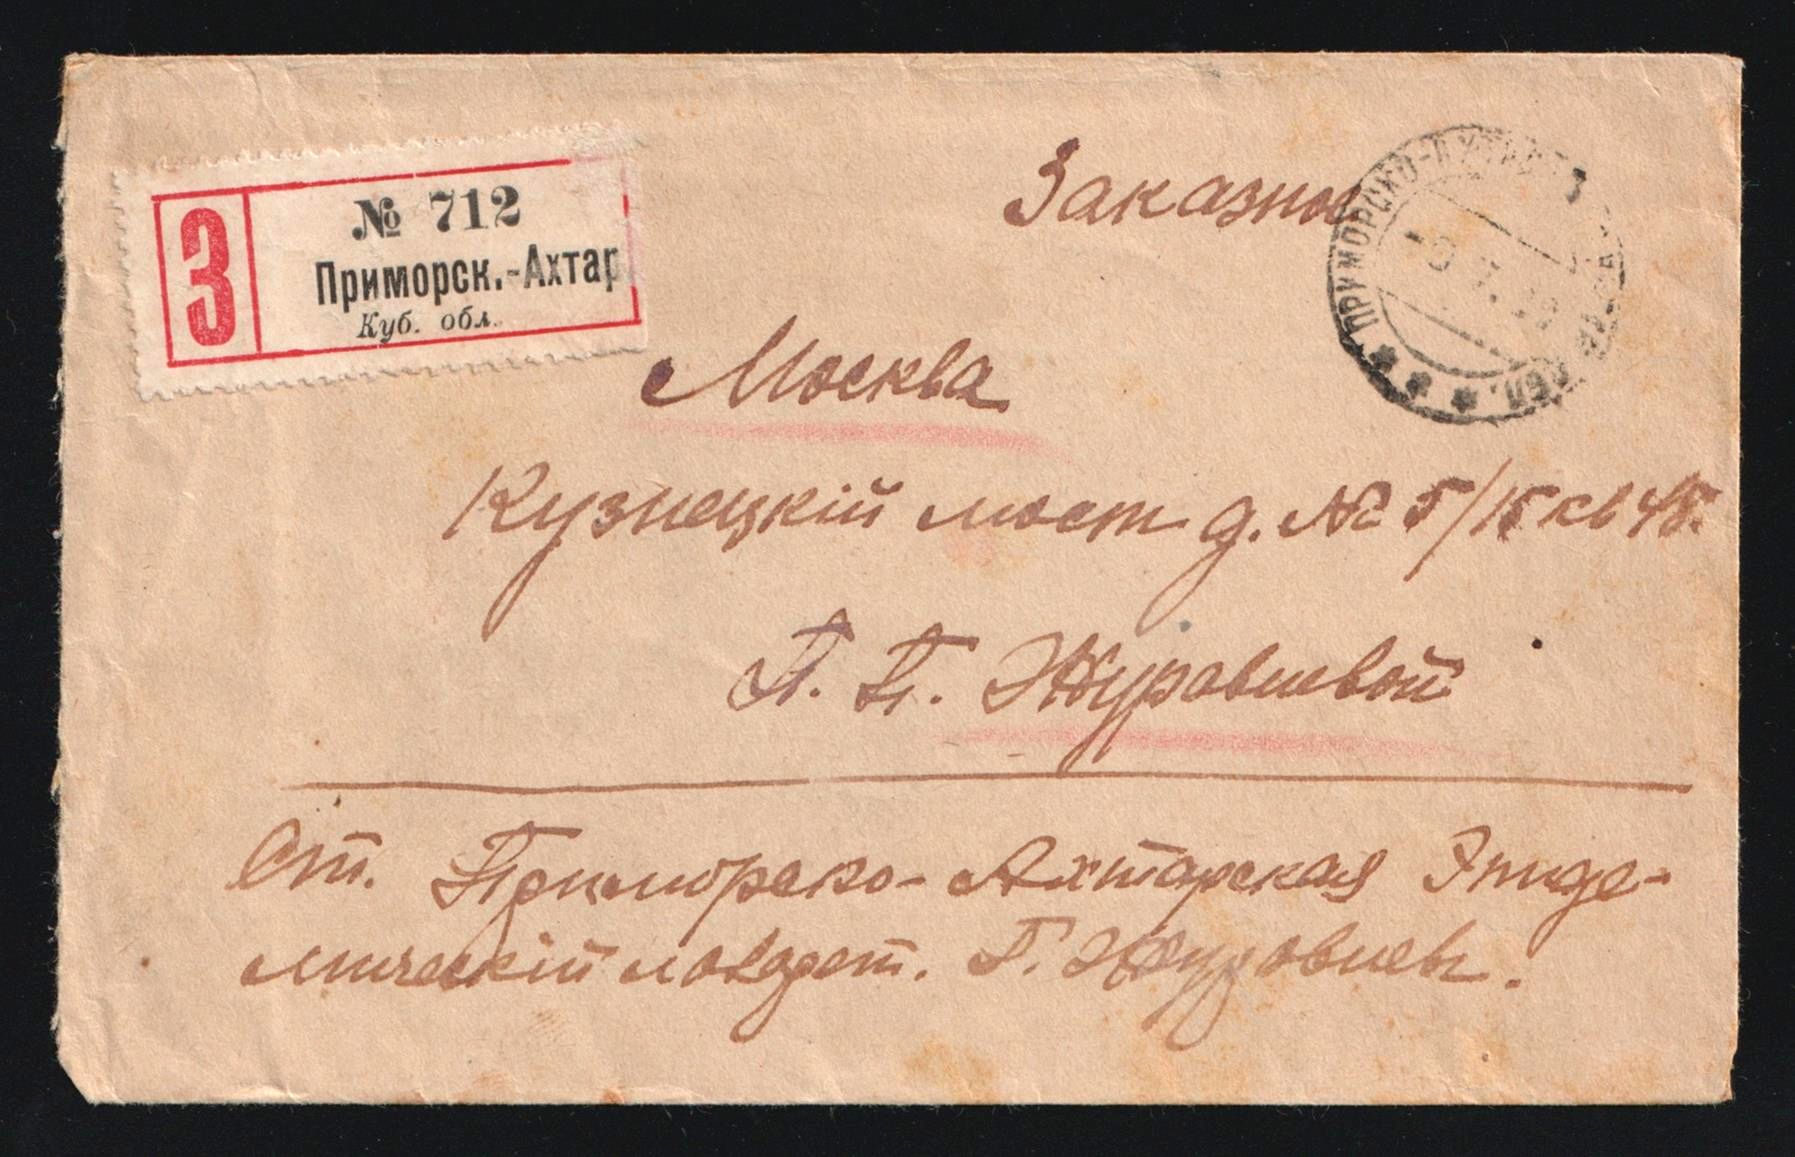 З
№ 712
Приморск.-Ахтар
Куб. обл.
Заказное
ПРИМОРСКО-АХТАРСК
ОБЛ.
Москва
Кузнецкій мост д. № 5/15 кв 45.
П. П. Журавлевой
От. Приморско-Ахтарская Эпиде-
мическій Г. Журавлев.